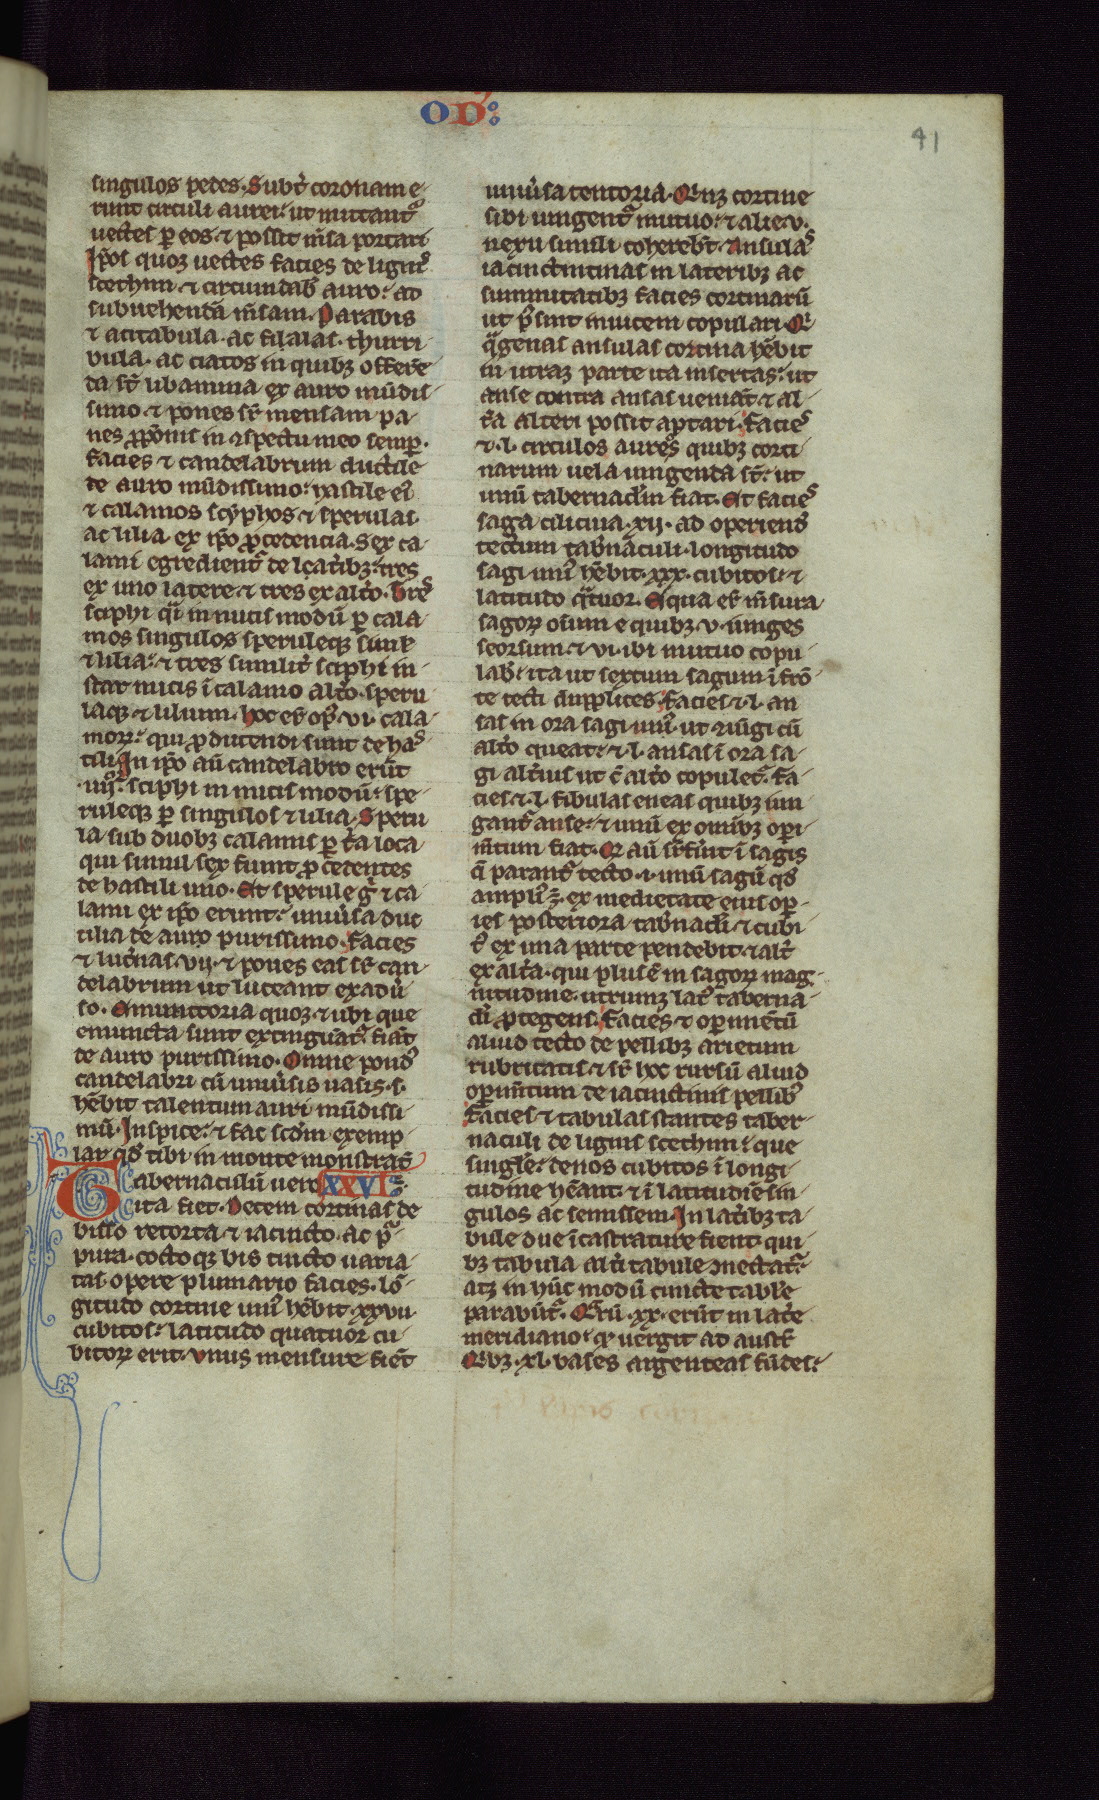 OD:
41
singulos pedes. Subt̾ coronam e-
runt circuli aurei: ut mittant᷑
uectes ꝑ eos ⁊ possit m̅sa portari
Ip̅os quoꝫ uectes facies de lignis
scethim ⁊ circumdab̾ auro: ad
subuehenda̅ m̅sam. Parabis
⁊ acitabula. ac fialas. thurri-
bula. ac ciatos in quibꝫ offere̅-
da st̅ libamina ex auro mu̅dis-
simo ⁊ pones sr̅ mensam pa-
nes ꝓpo̅nis in aspectu meo semꝑ.
Facies ⁊ candelabrum ductile
de auro mu̅dissimo: hastile ei᷒
⁊ calamos scyphos ⁊ sperulas
ac lilia ex ip̅o ꝓcedencia. Sex ca-
lami egredient᷑ de lateribꝫ: tres
ex uno latere ⁊ tres ex alt̾o. Tres
sciphi q̅i in nucis modu̅ ꝑ cala-
mos singulos speruleqꝫ simul
⁊ lilia: ⁊ tres similit̾ sciphi in-
star nucis i̅ calamo alt̾o. speru-
laqꝫ ⁊ lilium. hoc est op᷒ .vi. cala-
moꝝ: qui ꝓducendi sunt de has-
tili. In ip̅o au̅ candelabro eru̅t
.iiii. sciphi in nucis modu̅: spe-
ruleqꝫ ꝑ singulos ⁊ lilia. Speru-
la sub duobꝫ calamis ꝑ t̾a loca
qui simul sex fiunt ꝓcedentes
de hastili uno. Et sperule g̾ ⁊ ca-
lami ex ip̅o erunt: uniu̾sa duc-
tilia de auro purissimo. Facies
⁊ luc̾nas .vii. ⁊ pones eas sr̅ can-
delabrum ut luceant exadu̾-
so. Emunctoria quoꝫ ⁊ ubi que
emuncta sunt extinguant᷑ fia̅t
de auro purissimo. Omne pond᷒
candelabri cu̅ uniu̾sis uasis .s.
he̅bit talentum auri mu̅dissi-
mu̅. Inspice: ⁊ fac scd̅m exemp-
lar qd̾ tibi in monte monstrat᷑
Tabernaculu̅ uero XXVI
ita fiet. Decem cortinas de
bisso retorta ⁊ iacincto ac pur-
pura. coctoqꝫ bis tincto uaria-
tas opere plumario facies. lo̅-
gitudo cortine uni᷒ he̅bit .xxviii
cubitos: latitudo quatuor cu-
bitoꝝ erit. Vnius mensure fient
uniu̾sa tentoria. Qui̅qꝫ cortine
sibi iungent᷑ mutuo: ⁊ alie .v.
nexu simili coherebt̅. Ansulas
iacinctinas in lateribꝫ ac
summitatibꝫ facies cortinaru̅
ut p̅sint inuicem copulari. Qui̅-
q̅genas ansulas cortina he̅bit
in utraqꝫ parte ita insertas: ut
anse contra ansas ueniant ⁊ al-
t̾a alteri possit aptari. Facies
⁊ .l. circulos aureos quibꝫ corti-
narum uela iungenda st̅: ut
unu̅ tabernaclm̅ fiat. Et facies
saga cilicina .xii. ad operiend̾
tectum tab̾naculi. longitudo
sagi uni᷒ he̅bit .xxx. cubitos: ⁊
latitudo q̅tuor. Equa e̅ m̅sura
sagoꝝ o̅ium e quibꝫ .v. iu̅nges
seorsum ⁊ .vi. ibi mutuo copu-
lab̾: ita ut sextum sagum i̅ fro̅-
te tecti duplices. Facies ⁊ .l. an-
sas in ora sagi uni᷒ ut ꝯiu̅gi cu̅
alt̾o queat: ⁊ .l. ansas i̅ ora sa-
gi alt̾ius ut c̅ alt̾o copulet᷑. Fa-
cies ⁊ .l. fibulas eneas quibꝫ iun-
gant᷑ anse: ⁊ unu̅ ex omnibꝫ oꝑi-
m̅tum fiat. Qd̾ au̅ sr̅fu̾it i̅ sagis
q̅ parant᷑ tecto .i. unu̅ sagu̅ qd̾
ampli᷒ ÷ ex medietate eius oꝑ-
ies posteriora tab̾nacli̅ ⁊ cubi-
t᷒ ex una parte pendebit. ⁊ alt̾
ex alt̾a. qui plus e̅ in sagoꝝ mag-
nitudine. utrumqꝫ lat᷒ taberna-
cli̅ ꝓtegens. Facies ⁊ oꝑime̅tu̅
aliud tecto de pellibꝫ arietum
rubricatis ⁊ sr̅ hoc rursu̅ aliud
oꝑim̅tum de iacinctinis pellibꝫ
Facies ⁊ tabulas stantes taber-
naculi de lignis scethim: que
singl̅e: denos cubitos i̅ longi-
tudine he̅ant ⁊ i̅ latitudi̅e sin-
gulos ac semissem. In lat̾ibꝫ ta-
bule due i̅castrature fient. qui-
bꝫ tabula alt̾i tabule ꝯnectat᷑:
atqꝫ in hu̅c modu̅ cuncte tabl̅e
parabu̅t᷑. Qua̅ꝝ .xx. eru̅t in lat̾e
meridiano: qd̾ uergit ad austr̅
Quibꝫ .xl. bases argenteas fu̅des: